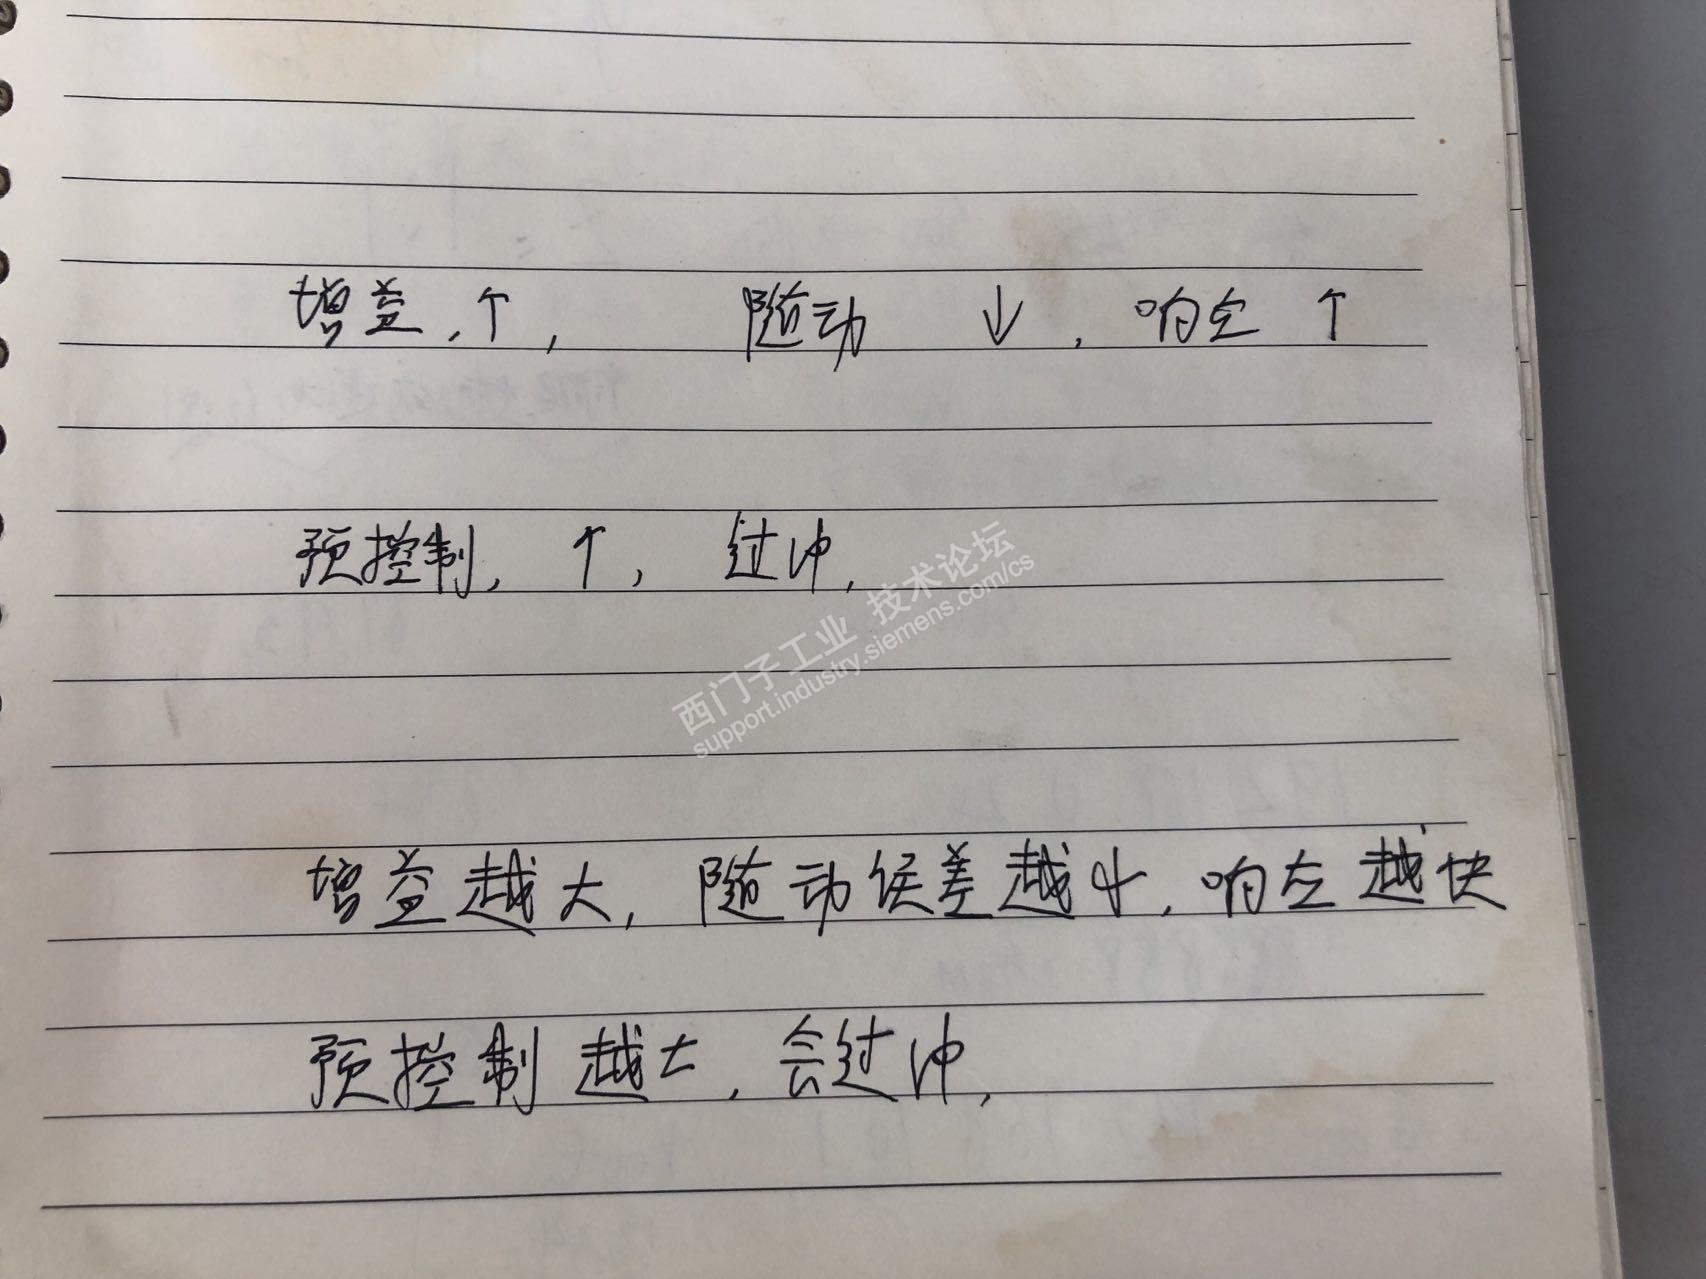 增益,↑, 随动 ↓, 响应 ↑
预控制, ↑, 过冲,
西门子工业 技术论坛
support.industry.siemens.com/cs
增益越大, 随动误差越小, 响应越快
预控制越大, 会过冲,